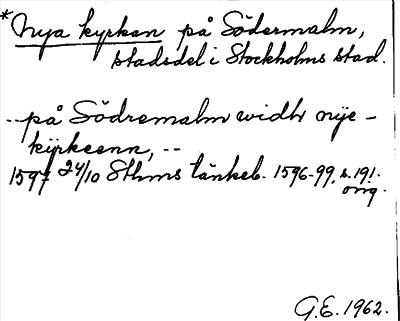 *Nya kyrkan på Södermalm,
stadsdel i Stockholms stad.
-- på Södremalm widh nÿe-
kÿrkeenn, --
1597 24/10 Sthms tänkeb. 1596-99. s. 191.
orig.
G.E. 1962.